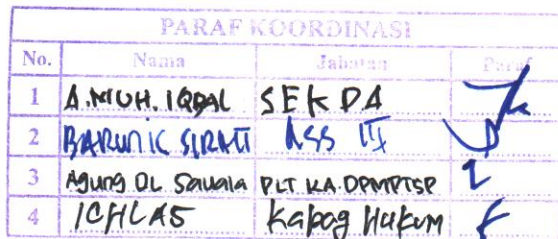 PARAF KOORDINASI
No. Nama Jabatan Paraf
1 A. MUH. IQBAL SEKDA
2 ASS III
3 Agung DL. Sawala PLT KA. DPMPTSP
4 ICHLAS Kabag Hukum